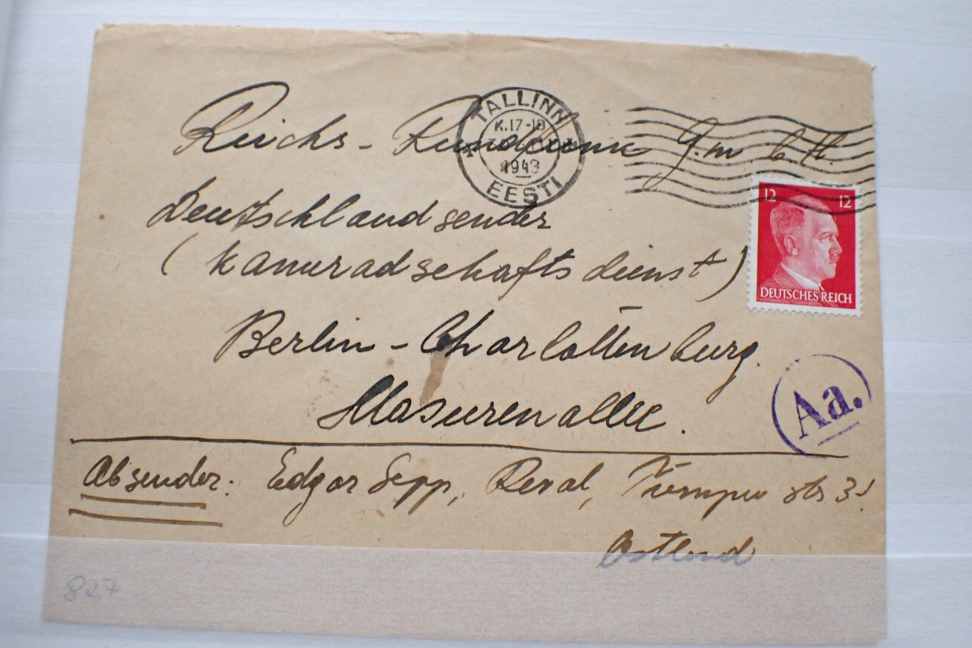 TALLINN
K.17-18
1943
EESTI
Reichs-Rundfunk G.m.b.H.
12 12
DEUTSCHES REICH
Deutschlandsender
(Kameradschaftsdienst)
Berlin-Charlottenburg.
Masurenallee.
Aa.
Absender: Edgar Sepp, Reval,
Ostland
827